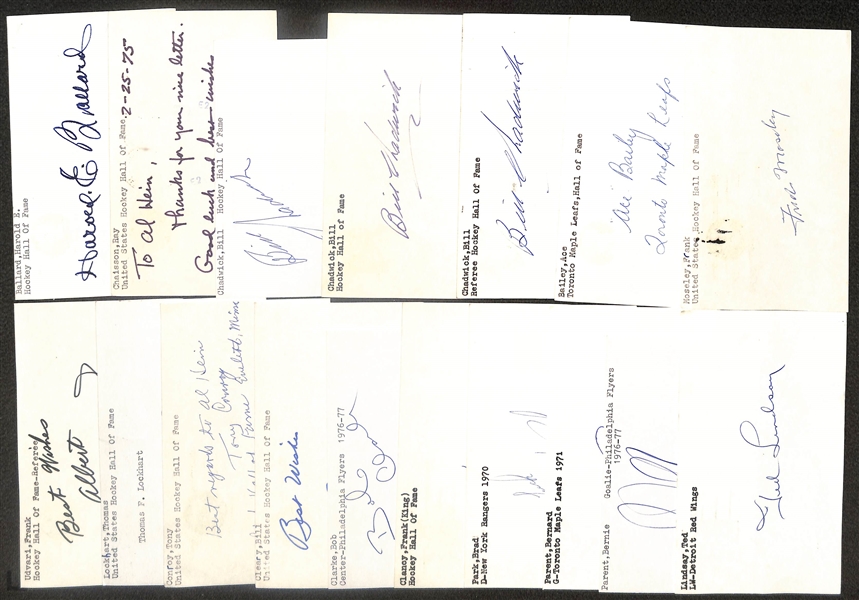 Ballard,Harold E.
Hockey Hall Of Fame
Harold E. Ballard
Chaisson,Ray
United States Hockey Hall Of Fame
2-25-75
To Al Hein,
Thanks for your nice letter.
Good luck and best wishes
Chadwick,Bill
Hockey Hall Of Fame
Chadwick,Bill
Hockey Hall of Fame
Bill Chadwick
Chadwick,Bill
Referee Hockey Hall Of Fame
Bill Chadwick
Bailey,Ace
Toronto Maple Leafs,Hall of Fame
Ace Bailey
Toronto Maple Leafs
Moseley,Frank
United States Hockey Hall Of Fame
Fred Moseley
Udvari,Frank
Hockey Hall Of Fame-Referee
Best Wishes
Albert
Lockhart,Thomas
United States Hockey Hall Of Fame
Thomas F. Lockhart
Conroy,Tony
United States Hockey Hall Of Fame
Best regards to Al Hein
Tony Conroy
Hall of Fame Eveleth, Minn
Cleary,Bill
United States Hockey Hall Of Fame
Best Wishes
Clarke,Bob
Center-Philadelphia Flyers 1976-77
Clancy,Frank(King)
Hockey Hall Of Fame
Park,Brad
D-New York Rangers 1970
Parent,Bernard
G-Toronto Maple Leafs 1971
Parent,Bernie
Goalie-Philadelphia Flyers
1976-77
Lindsay,Ted
LW-Detroit Red Wings
Ted Lindsay